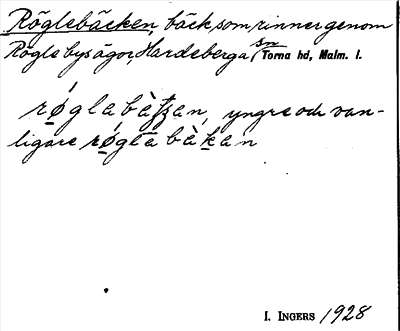 Röglebäcken, bäck, som rinner genom
Rögle bys ägor, Hardeberga sn Torna hd, Malm. l.
røglabàtʃan, yngre och van-
ligare røglabàkan
I. INGERS 1928